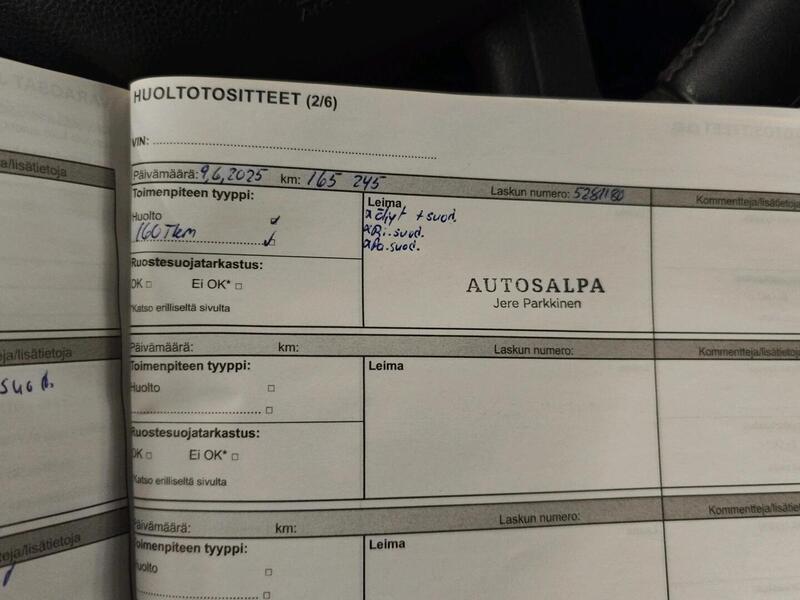 HUOLTOTOSITTEET (2/6)
VIN:
Päivämäärä: 9,6,2025 km: 165 245 Laskun numero: 5281180 Kommentteja/lisätie
Toimenpiteen tyyppi:
Huolto
160 Tkm
Ruostesuojatarkastus:
OK Ei OK*
*Katso erilliseltä sivulta
Leima
x öljyt + suod.
x Ri.suod.
x Pa.suod.
AUTOSALPA
Jere Parkkinen
Päivämäärä: km: Laskun numero: Kommentteja/lisätie
Toimenpiteen tyyppi:
Huolto
Ruostesuojatarkastus:
OK Ei OK*
*Katso erilliseltä sivulta
Leima
Päivämäärä: km: Laskun numero: Kommentteja/lis
Toimenpiteen tyyppi:
Huolto
Leima
ja/lisätietoja
eja/lisätietoja
suod.
teja/lisätietoja